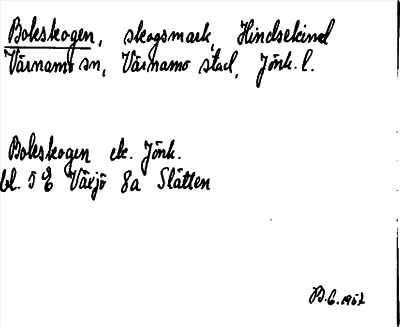 Bokskogen, skogsmark, Hindsekind
Värnamo sn, Värnamo stad, Jönk. l.
Bokskogen ek. Jönk.
bl. 5 E Växjö 8a Slätten
B.G. 1957